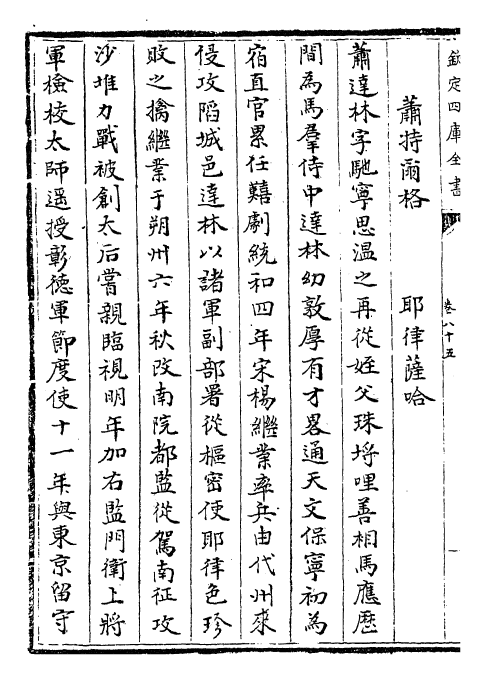 欽定四庫全書
卷八十五
一
蕭特爾格　耶律薩哈
蕭達林字馳寧思溫之再從姪父珠埒哩善相馬應歷
間為馬羣侍中達林幼敦厚有才畧通天文保寧初為
宿直官累任囏劇統和四年宋楊繼業率兵由代州來
侵攻䧟城邑達林以諸軍副部署從樞密使耶律色珍
敗之擒繼業于朔州六年秋改南院都監從駕南征攻
沙堆力戰被創太后嘗親臨視明年加右監門衛上將
軍檢校太師遥授彰徳軍節度使十一年與東京留守